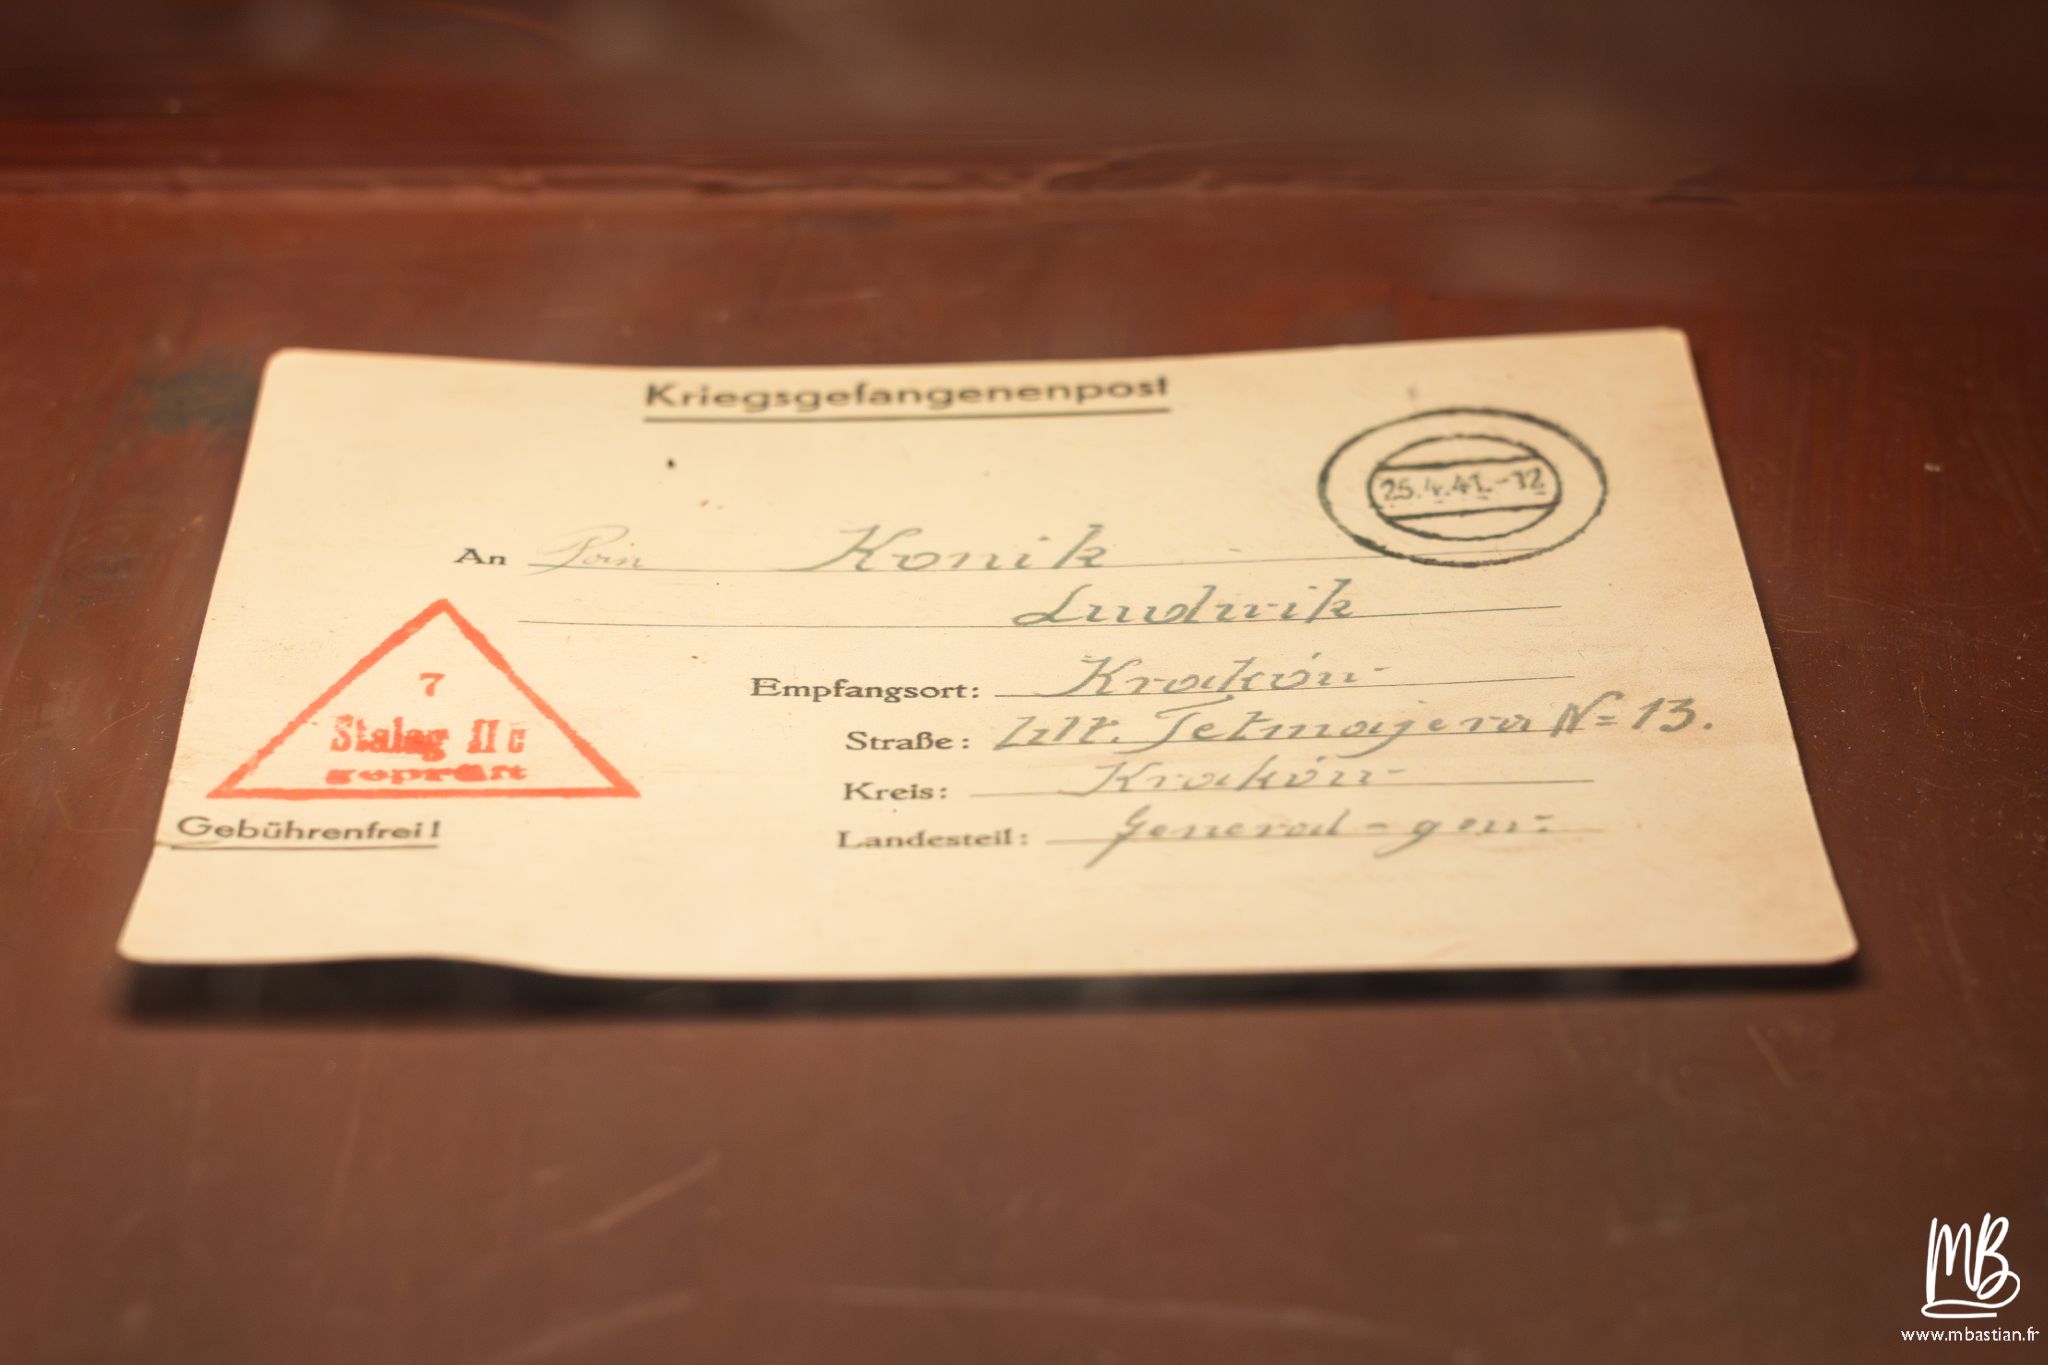 Kriegsgefangenenpost
25.4.41.-12
An Konik
Ludwik
Empfangsort: Kraków
Straße: Ult. Tetmajera № 13.
Kreis: Kraków
Landesteil: General-gouv:
7
Stalag II C
geprüft
Gebührenfrei!
MB
www.mbastian.fr